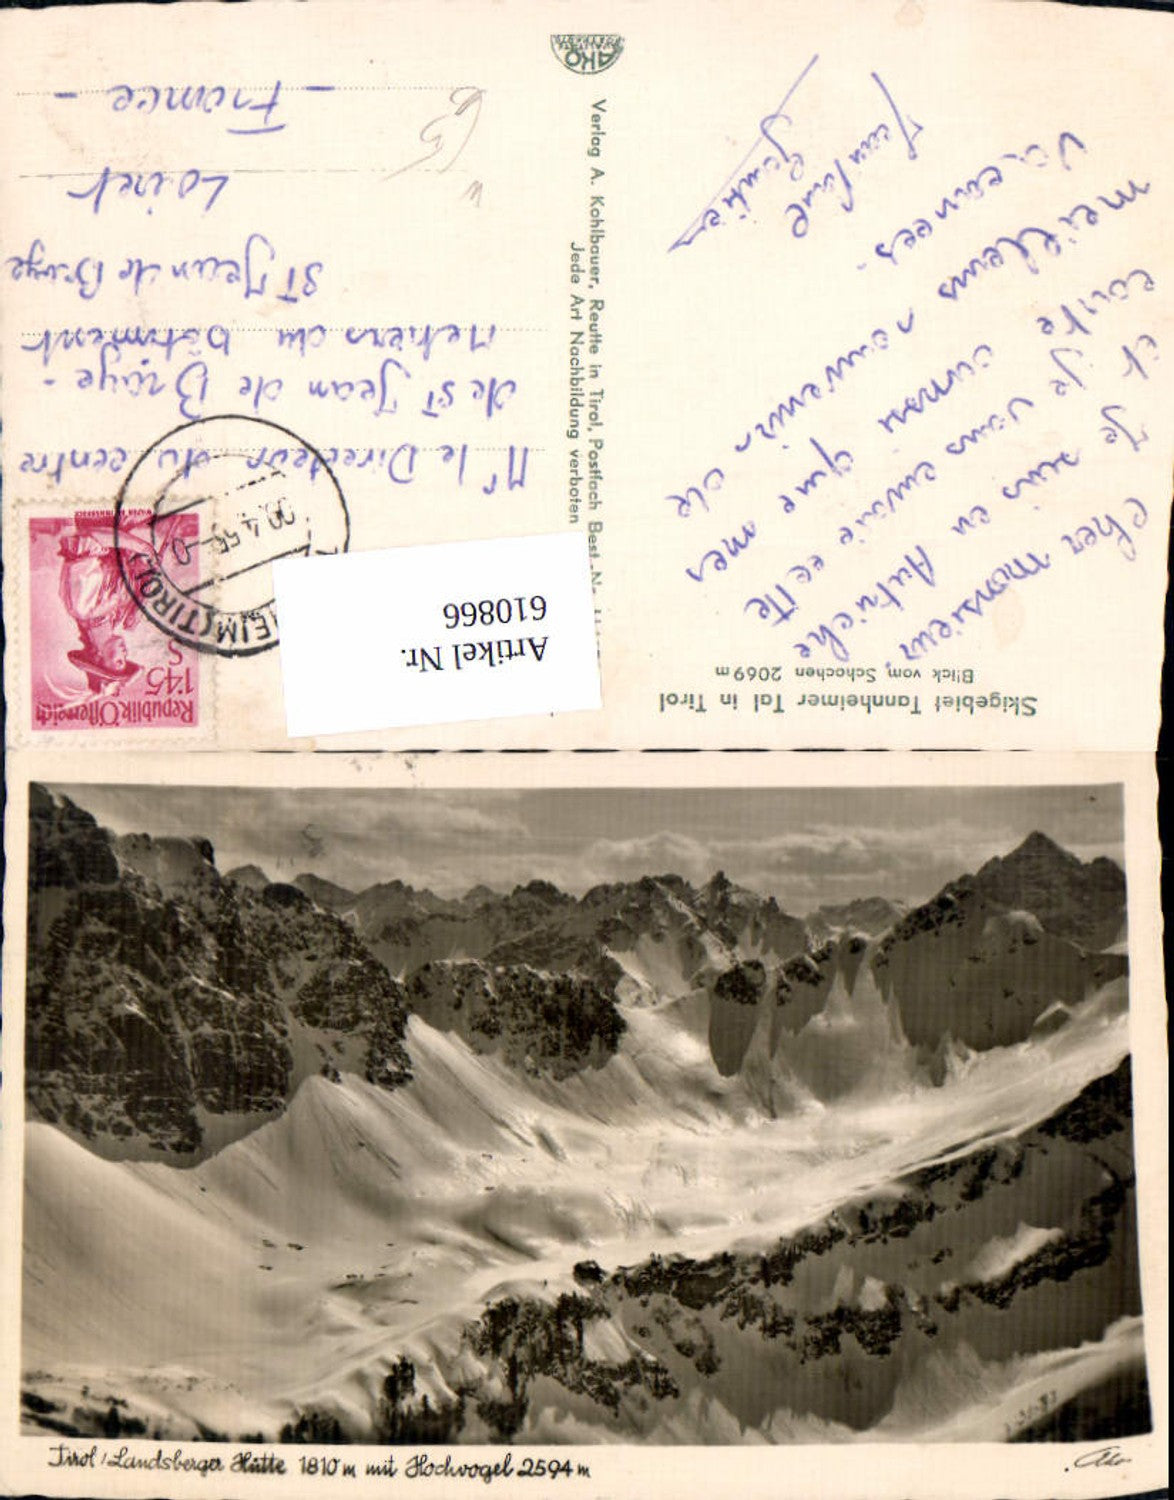 Skigebiet Tannheimer Tal in Tirol
Blick vom Schochen 2069 m
Cher monsieur
Je suis en Autriche
et je vous envoie cette
carte ainsi que mes
meilleurs souvenirs de
vacances.
Jean Paul
Verlag A. Kohlbauer, Reutte in Tirol, Postfach Best.-Nr.
Jede Art Nachbildung verboten
AKO
Republik Österreich
1'45
S
HEIM (TIROL)
Artikel Nr.
610866
Mr le Directeur du centre
de St Jean de Braye -
Metiers du bâtiment
St Jean de Braye
Loiret
- France -
Tirol / Landsberger Hütte 1810 m mit Hochvogel 2594 m
Ako